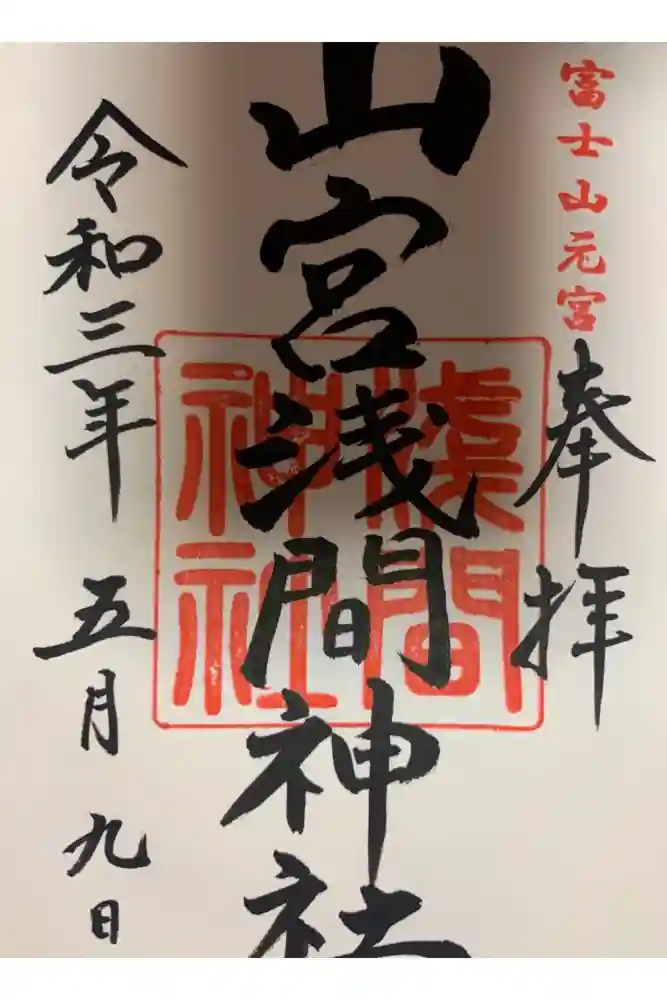 富士山元宮
奉拝
山宮浅間神社
淺間
神社
令和三年 五月 九日